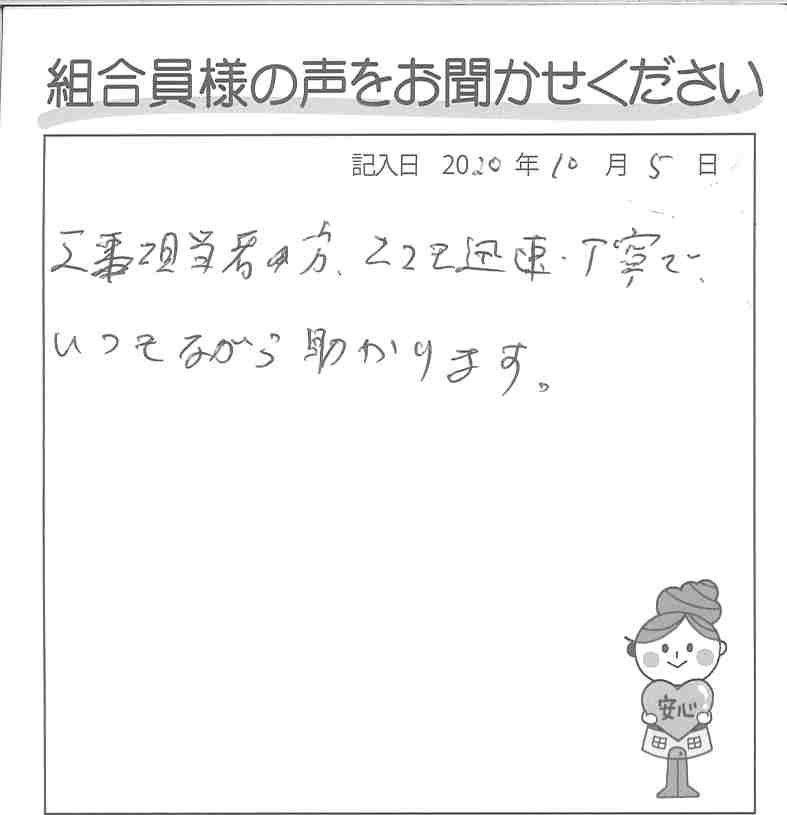 組合員様の声をお聞かせください
記入日 2020 年 10 月 5 日
工事担当者の方、とても迅速・丁寧で、
いつもながら助かります。
安心